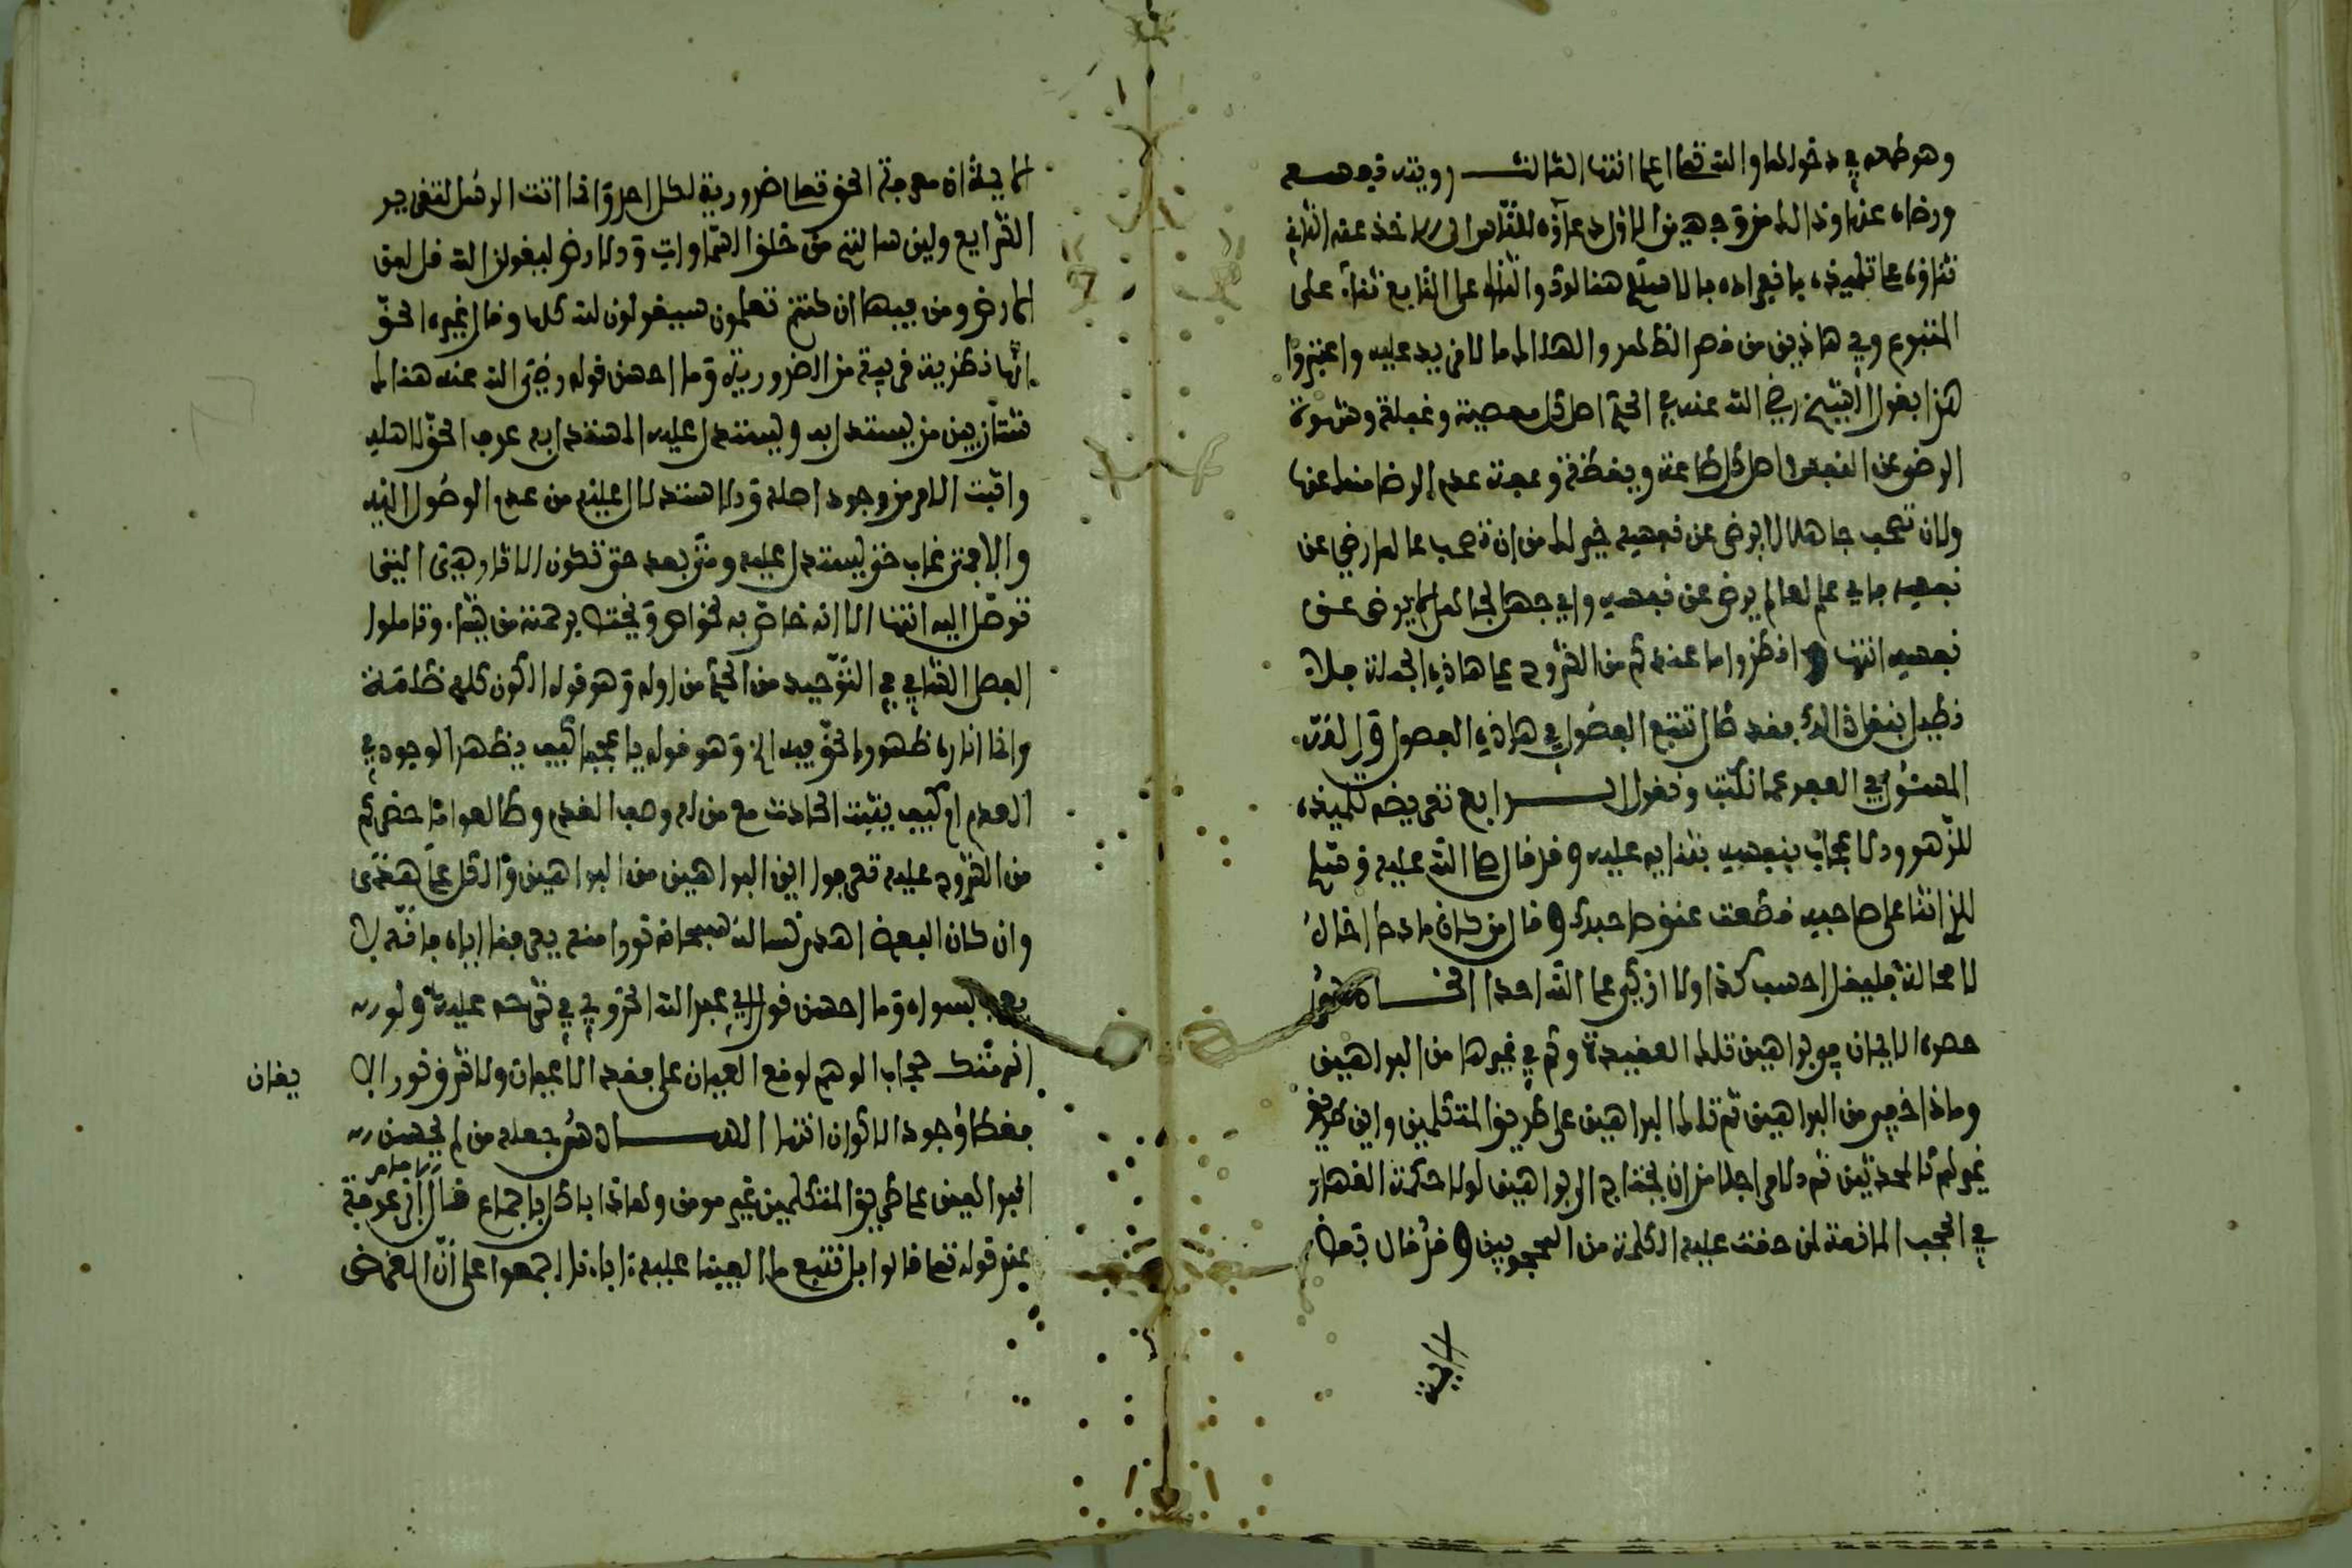 وهو طمعه في دخولها والله تعلى اعلم انتهى الثالث رؤيته نفسه
ورضاه عنها وذالك من وجهين الاول دعاؤه للناس الى الاخذ عنه الثاني
ثناؤه على تلميذه بانفراده بالاتباع هنالك والثناء على التابع ثناء على
المتبوع وفي هاذين من قصم الظهر والهلاك ما لا مزيد عليه واعتبروا
هنا بقول الشيخ رضي الله عنه في الحكم اصل كل معصية وغفلة وشهوة
الرضى عن النفس واصل كل طاعة ويقظة وعفة عدم الرضا منك عنها
ولان تصحب جاهلا لا يرضى عن نفسه خير لك من ان تصحب عالما رضي عن
نفسه فاي علم لعالم يرضى عن نفسه واي جهل لجاهل لا يرضى عن
نفسه انتهى انظروا ما عندكم من الشروح على هاذه الجملة فلا
نطيل بنقل ذالك فقد طال تتبع الفصول في هاذه الفصول والله
المسئول في العفو عما نكتب ونقول الرابع تعريضه تلميذه
للزهو والاعجاب بنفسه بثنايه عليه وقد قال صلى الله عليه وسلم
للذي اثنا على صاحبه قطعت عنق صاحبك وقال من كان مادحا اخاه
لا محالة فليقل احسب كذا ولا ازكي على الله احدا الخامس
حصره الايمان في براهين تلك العقيدة وكم في غيرها من البراهين
وماذا خير من البراهين ثم تلك البراهين على طريق المتكلمين واين طريق
غيرهم كالمحدثين ثم والامر اجلا من ان يحتاج الى براهين لولا حكمة القهار
في الحجب المانعة لمن حقت عليه الكلمة من المحجوبين وقد قال بعض
الاية ان معرفة الحق تعلى ضرورية لكل احد وانما اتت الرسل لتقرير
الشرايع ولئن سالتهم من خلق السماوات والارض ليقولن الله قل لمن
الارض ومن فيها ان كنتم تعلمون سيقولون لله كلها وقال غيره الحق
انها نظرية قريبة من الضرورية وما احسن قوله رضي الله عنه هنالك
شتان بين من يستدل به و يستدل عليه المستدل به عرف الحق لاهله
واثبت الامر من وجود اصله والاستدلال عليه من عدم الوصول اليه
والا فمتى غاب حتى يستدل عليه ومتى بعد حتى تكون الاثار هي التي
توصل اليه انتهى الا انه خاص به لخواص يختص برحمته من يشاء وتاملوا
الفصل الثاني في التوحيد من الحكم من اوله وهو قوله الكون كله ظلمة
وانما اناره ظهور الحق فيه الى وهو قوله يا عجبا كيف يظهر الوجود في
العدم ام كيف يثبت الحادث مع من له وصف القدم وطالعوا ما حضركم
من الشروح عليه تعرفوا اين البراهين من البراهين والكل على هدى
وان كان البعض اهدى نسال الله سبحانه نورا منه يعرفنا اياه فانه لا
يعرف بسواه وما احسن قول ابي عبد الله الخروبي في شرحه عليه ولو
انهتك حجاب الوهم لوقع العيان على فقد الاعيان ولاشرق نور الا يقان
فغطا وجود الاكوان انتهى السادس جعله من لم يحسن
البراهين على طريق المتكلمين غير مومن وهاذا باطل باجماع قال ابن عرفة
عند قوله تعلى قالوا بل نتبع ما الفينا عليه ءاباءنا اجمعوا على ان